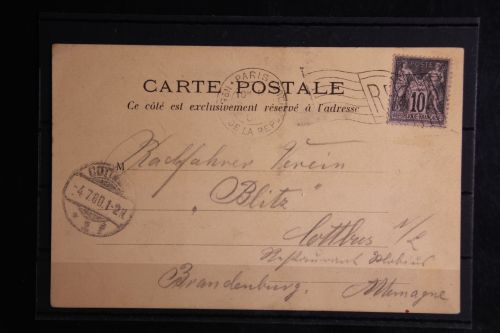 CARTE POSTALE
Ce côté est exclusivement réservé à l'adresse
PARIS
DE LA REP
R
POSTE
10
M Radfahrer Verein
"Blitz"
Cottbus N/L
Restaurant
Brandenburg. Allemagne
COTT
-4.7.00.1-2N